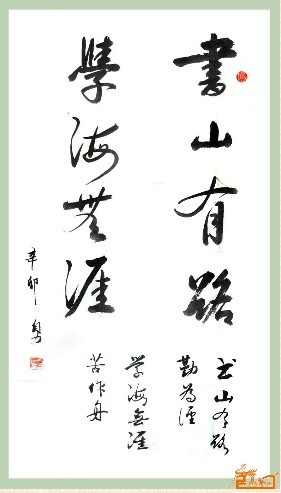 書山有路
學海無涯
书山有路
勤為径
学海無涯
苦作舟
辛卯